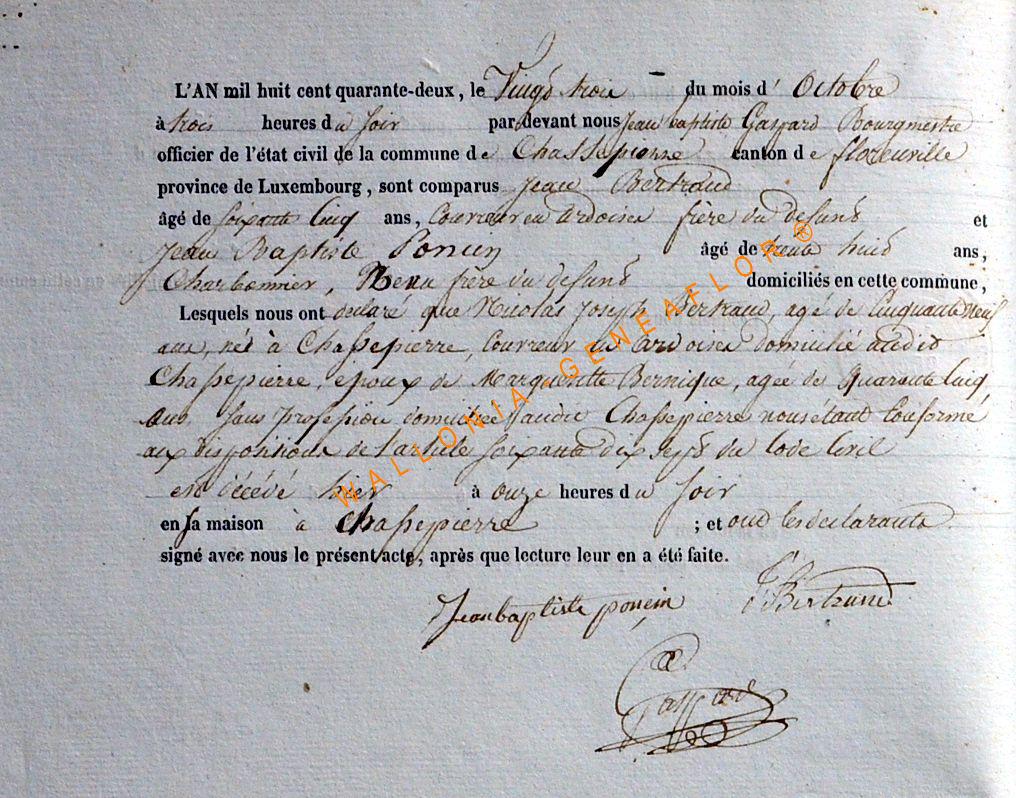 L'AN mil huit cent quarante-deux, le Vingt trois du mois d' Octobre
à trois heures du soir par devant nous Jean baptiste Gaspard Bourgmestre
officier de l'état civil de la commune de Chassepierre canton de florenville
province de Luxembourg, sont comparus Jean Bertrand
âgé de soixante Cinq ans, Couvreur en ardoises frère du defunt et
Jean Baptiste Poncin âgé de trente huit ans,
Charbonnier, Beau frère du defunt domiciliés en cette commune,
Lesquels nous ont declaré que Nicolas Joseph Bertrand, agé de Cinquante Neuf
ans, né à Chassepierre, Couvreur en ardoises domicilié audit
Chassepierre, epoux de Margueritte Bernique, agée de quarante Cinq
ans sans profession domiciliée audit Chassepierre nous étant Conformé
aux dispositions de l'article soixante dix sept du Code Civil
est décédé hier à onze heures du soir
en sa maison à Chassepierre ; et ont les declarants
signé avec nous le présent acte, après que lecture leur en a été faite.
Jean baptiste ponçin J Bertrand
Gaspard
WALLONIA-GENEAFLOR®